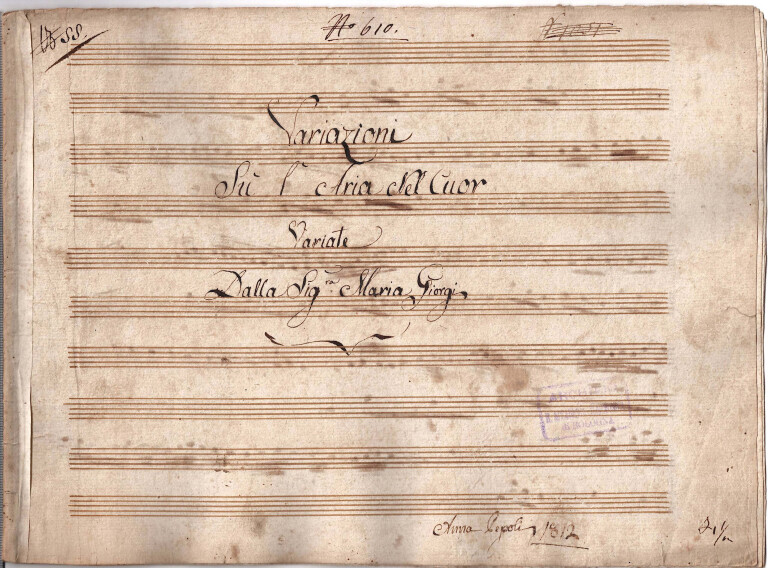 SS.
No 610.
Variazioni
Sù l' Aria Nel Cuor
Variate
Dalla Sig.ra Maria Giorgi
DI BOLOGNA
Anna Pepoli 1812